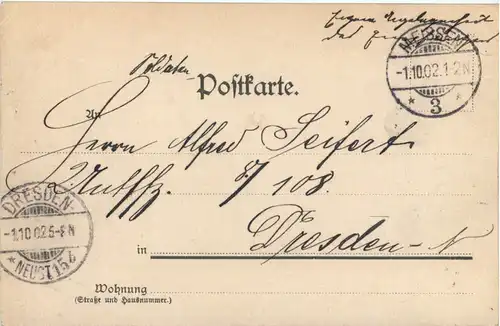 Eigene Angelegenheit
des
MEISSEN
-1.10.02.1-2N
* 3 *
Soldaten
Postkarte.
An
Herrn Alfred Seifert
8/108.
DRESDEN-
-1.10.02.5-8N
* NEUST. 15 b
in Dresden-N
Wohnung
(Straße und Hausnummer.)